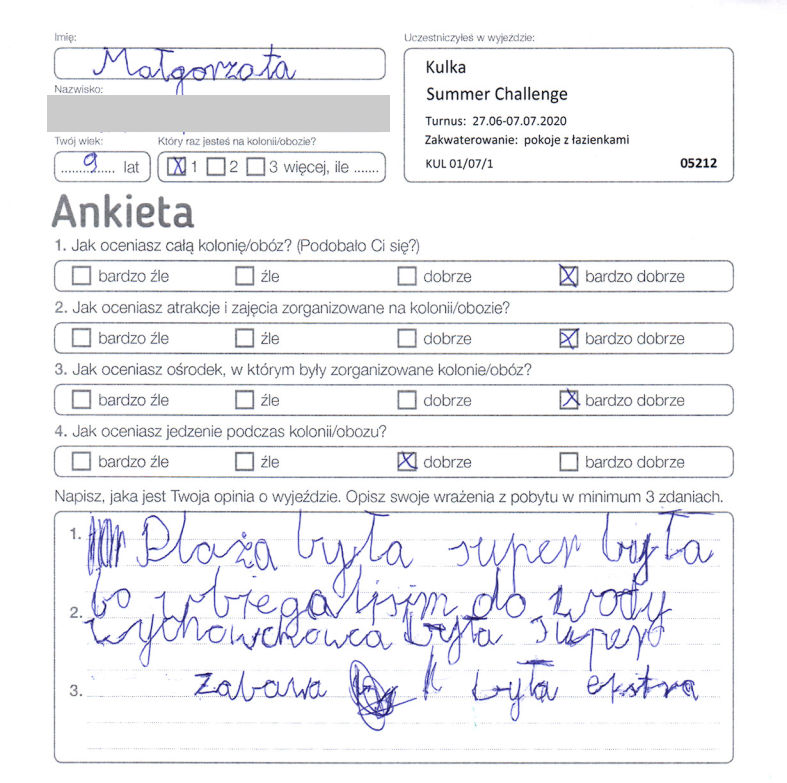 Imię:
Małgorzata
Nazwisko:
Twój wiek:
9 lat
Który raz jesteś na kolonii/obozie?
X 1 2 3 więcej, ile .......
Uczestniczyłeś w wyjeździe:
Kulka
Summer Challenge
Turnus: 27.06-07.07.2020
Zakwaterowanie: pokoje z łazienkami
KUL 01/07/1 05212
Ankieta
1. Jak oceniasz całą kolonię/obóz? (Podobało Ci się?)
bardzo źle źle dobrze X bardzo dobrze
2. Jak oceniasz atrakcje i zajęcia zorganizowane na kolonii/obozie?
bardzo źle źle dobrze X bardzo dobrze
3. Jak oceniasz ośrodek, w którym były zorganizowane kolonie/obóz?
bardzo źle źle dobrze X bardzo dobrze
4. Jak oceniasz jedzenie podczas kolonii/obozu?
bardzo źle źle X dobrze bardzo dobrze
Napisz, jaka jest Twoja opinia o wyjeździe. Opisz swoje wrażenia z pobytu w minimum 3 zdaniach.
1. Plaża była super była
bo wbiegaliśim do wody
2. wychowckowca była super
3. zabawa była ekstra